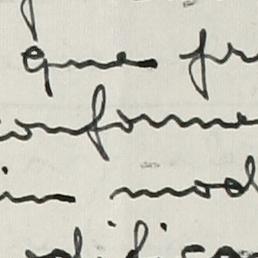 que fr
onforme
in mod